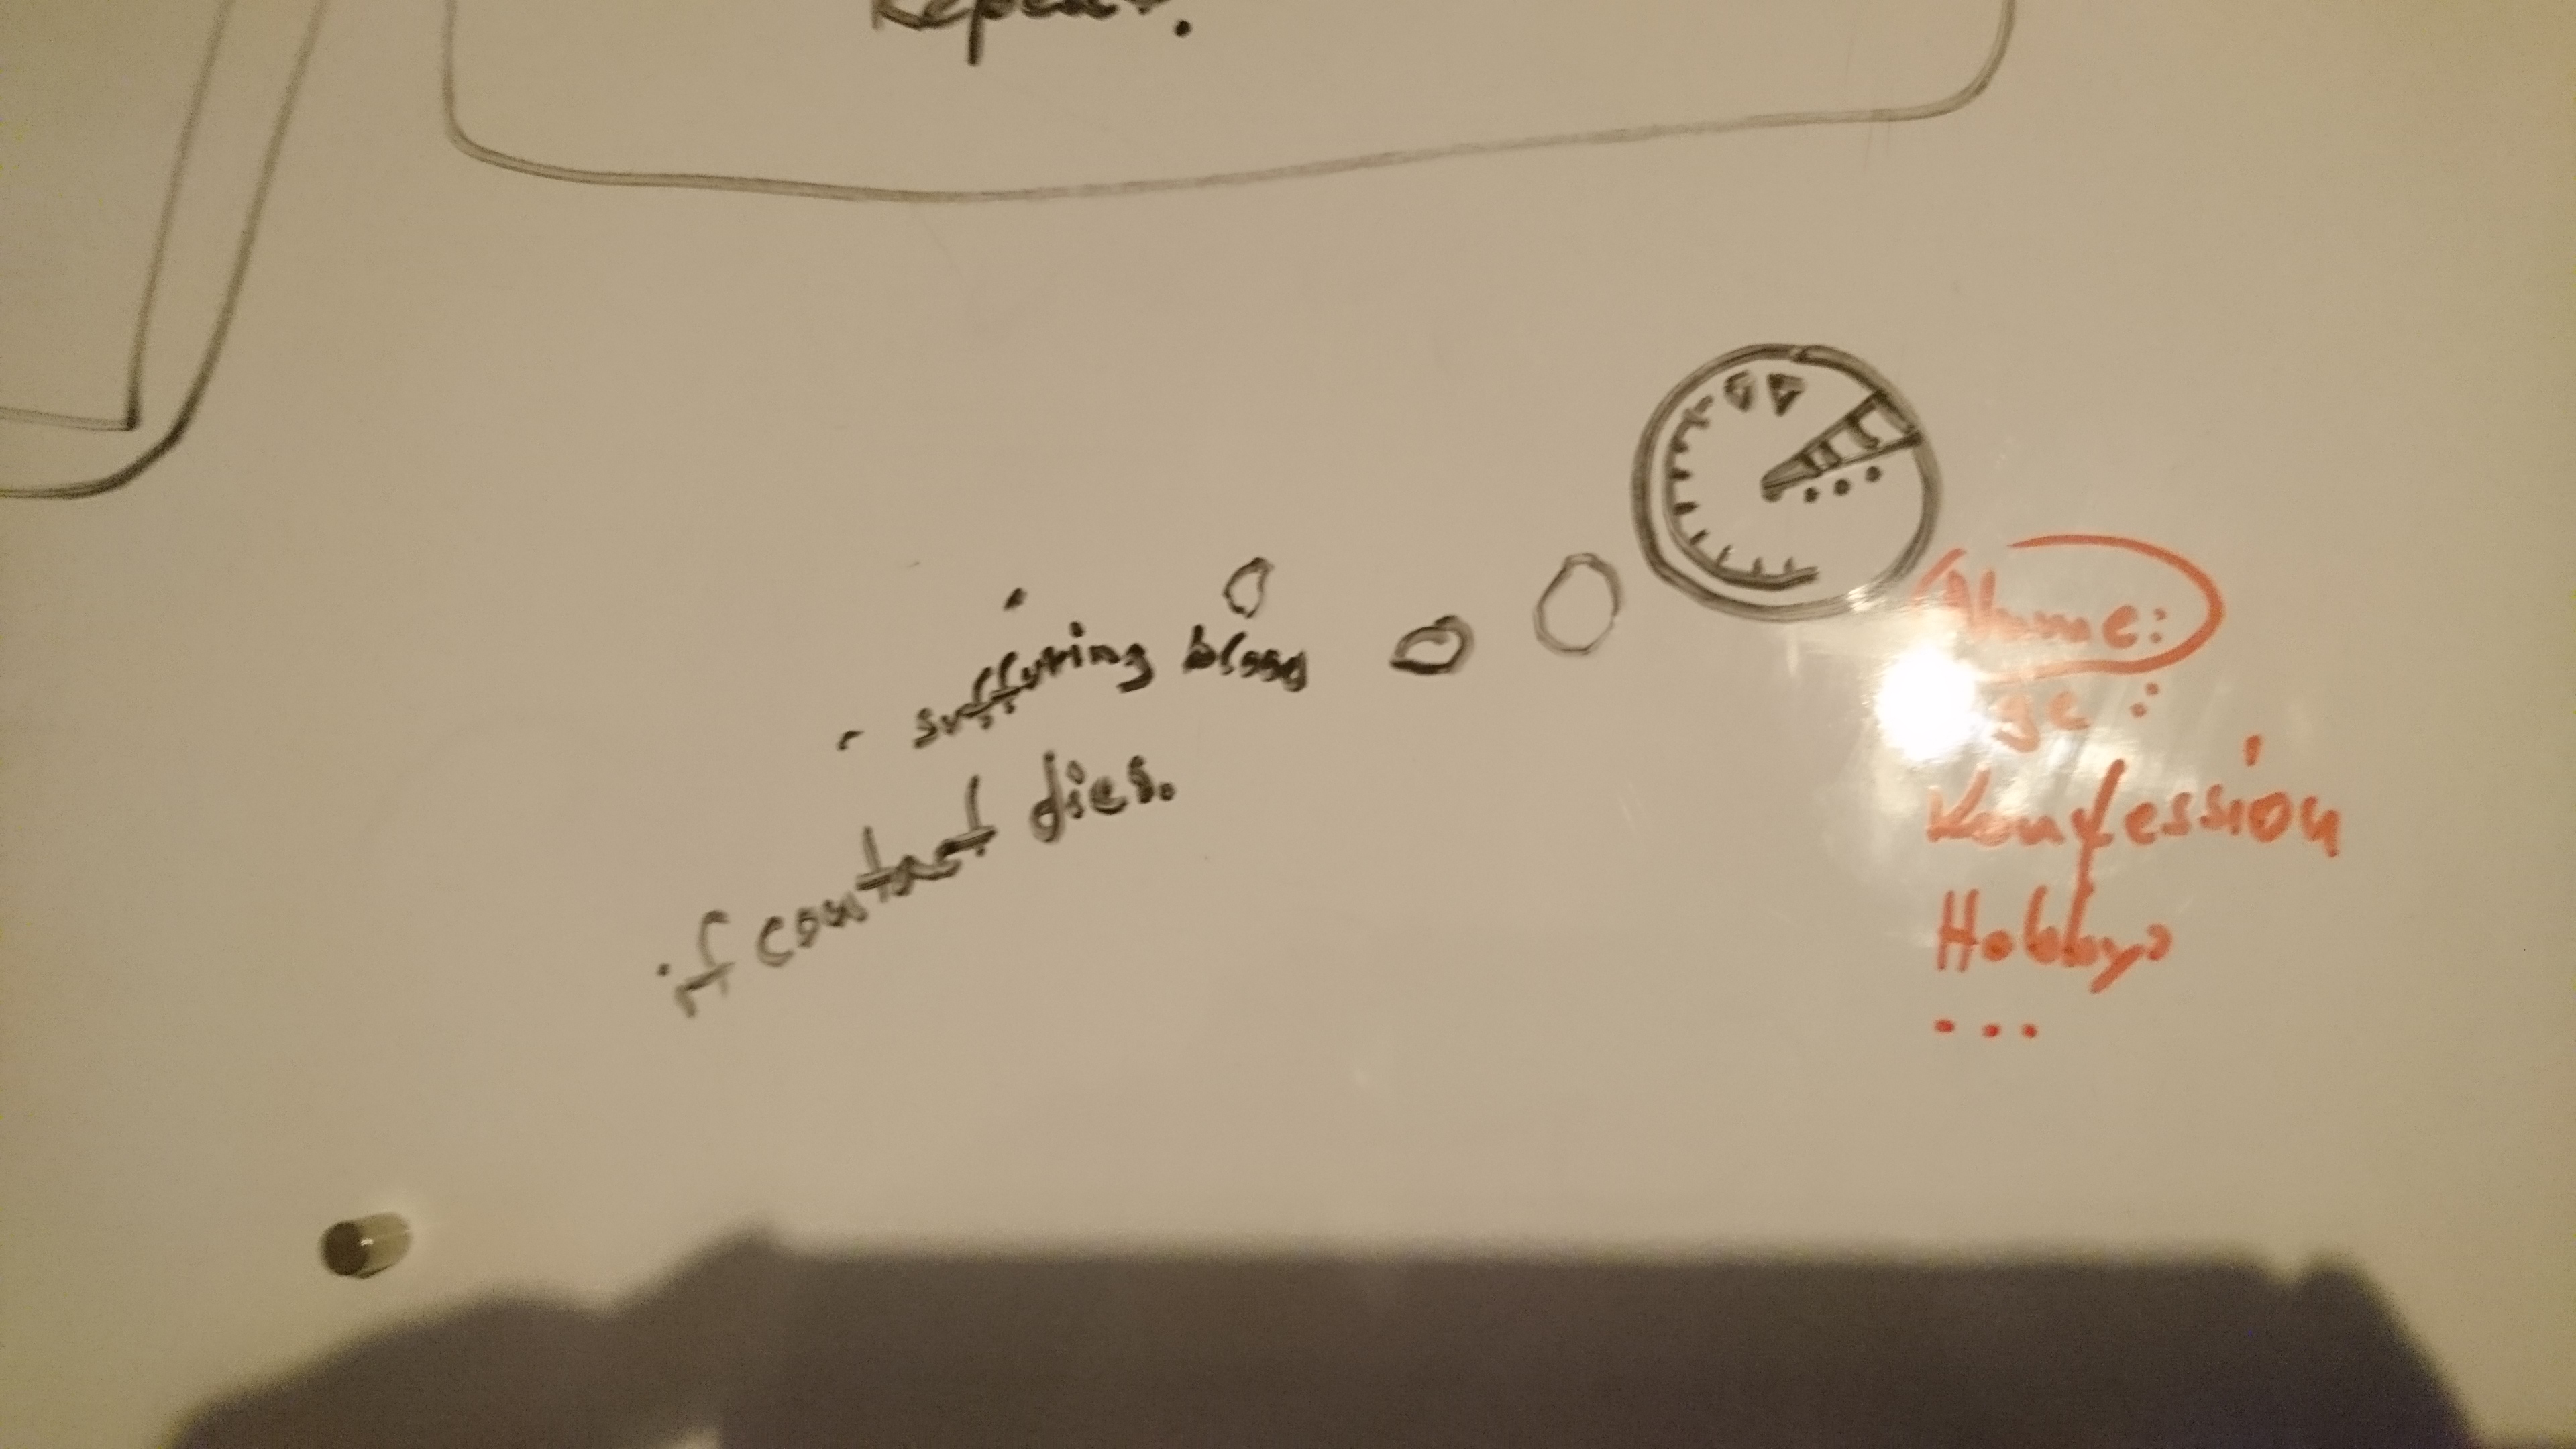 Repeat.
suffering blood
if contact dies.
Name:
ge :
Konfession
Hobbys
...